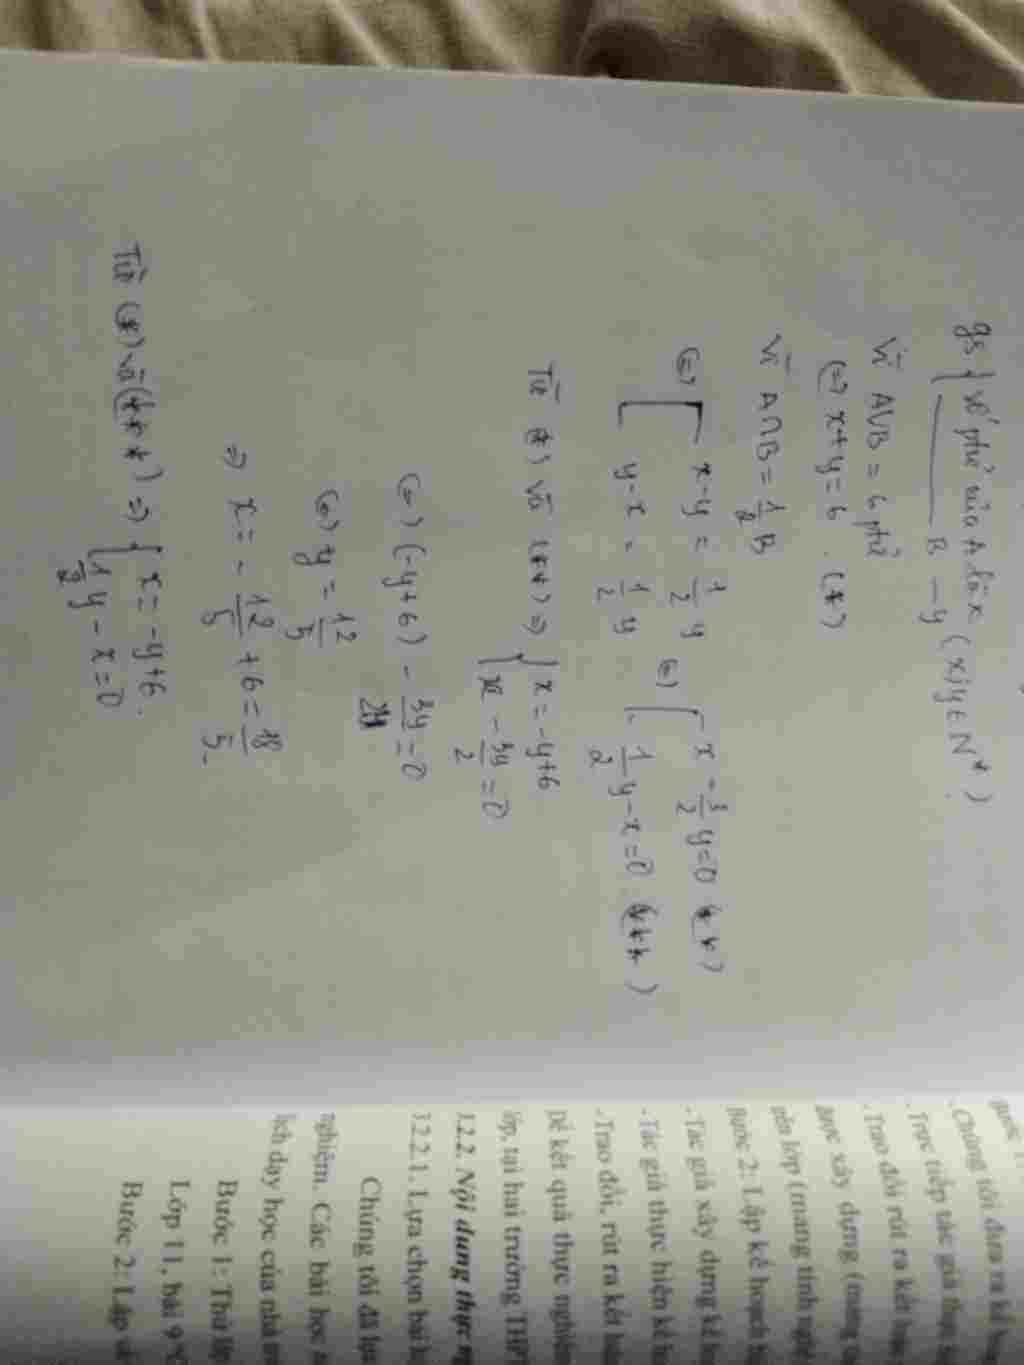 gs { số phtử của A là x (x; y ∈ N*)
____ B — y
Vì A∪B = 6 phtử
(=) x+y = 6 . (*)
Vì A∩B = 1/2 B
(=) [ x-y = 1/2 y
y-x = 1/2 y
(=) [ x - 3/2 y = 0 (**)
1/2 y - x = 0 (***)
Từ (*) và (**) => { x = -y+6
x - 3y/2 = 0
(=) (-y+6) - 3y/2 = 0
(=) y = 12/5
=> x = - 12/5 + 6 = 18/5
Từ (*) và (***) => { x = -y+6.
1/2 y - x = 0
- Chúng tôi đưa ra kế
- Trực tiếp tác giả
- Trao đổi rút ra kết
xây dựng (mang
lớp (mang tính
Bước 2: Lập kế hoạch
- Tác giả xây dựng kế
- Tác giả thực hiện kế
- Trao đổi, rút ra kết
Để kết quả thực nghiệm
lớp, tại hai trường THPT
3.2.2. Nội dung thực
3.2.2.1. Lựa chọn bài
Chúng tôi đã
nghiệm. Các bài học
dạy học của nhà
Bước 1: Thử
Lớp 11, bài 9
Bước 2: Lập